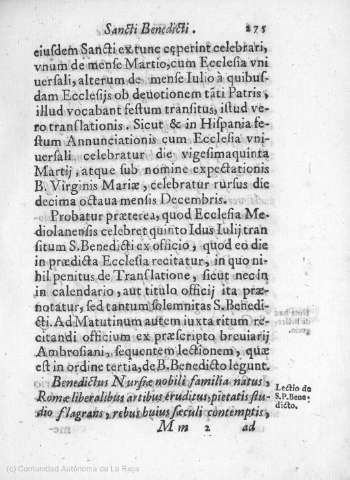 Sancti Benedicti. 275
eiusdem Sancti ex tunc cęperint celebrari,
vnum de mense Martio, cum Ecclesia vni
uersali, alterum de mense Iulio à quibus-
dam Ecclesijs ob deuotionem tāti Patris,
illud vocabant festum transitus, istud ve-
ro translationis. Sicut & in Hispania fe-
stum Annunciationis cum Ecclesia vni-
uersali celebratur die vigesimaquinta
Martij, atque sub nomine expectationis
B. Virginis Mariæ, celebratur rursus die
decima octaua mensis Decembris.
Probatur præterea, quod Ecclesia Me-
diolanensis celebret quinto Idus Iulij tran
situm S. Benedicti ex officio, quod eo die
in prædicta Ecclesia recitatur, in quo ni-
hil penitus de Translatione, sicut necin
in calendario, aut titulo officij ita præ-
notatur, sed tantum solemnitas S. Benedi-
cti. Ad Matutinum autem iuxta ritum re-
citandi officium ex præscripto breuiarij
Ambrosiani, sequentem lectionem, quæ
est in ordine tertia, de B. Benedicto legunt.
Benedictus Nursiæ nobili familia natus,
Romæ liberalibus artibus eruditus, pietatis stu-
dio flagrans, rebus huius sæculi contemptis,
Lectio de
S. P. Bene-
dicto.
M m 2 ad
(c) Comunidad Autónoma de La Rioja